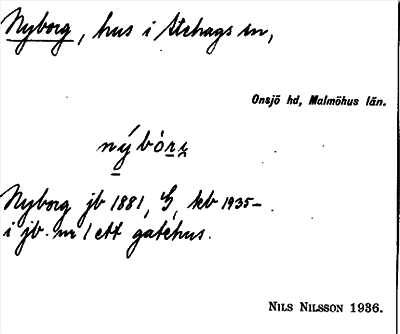 Nyborg, hus i Stehags sn,
Onsjö hd, Malmöhus län.
nýbòri̯
Nyborg jb 1881, G, kb 1935–
i jb. nr 1 ett gatehus.
NILS NILSSON 1936.